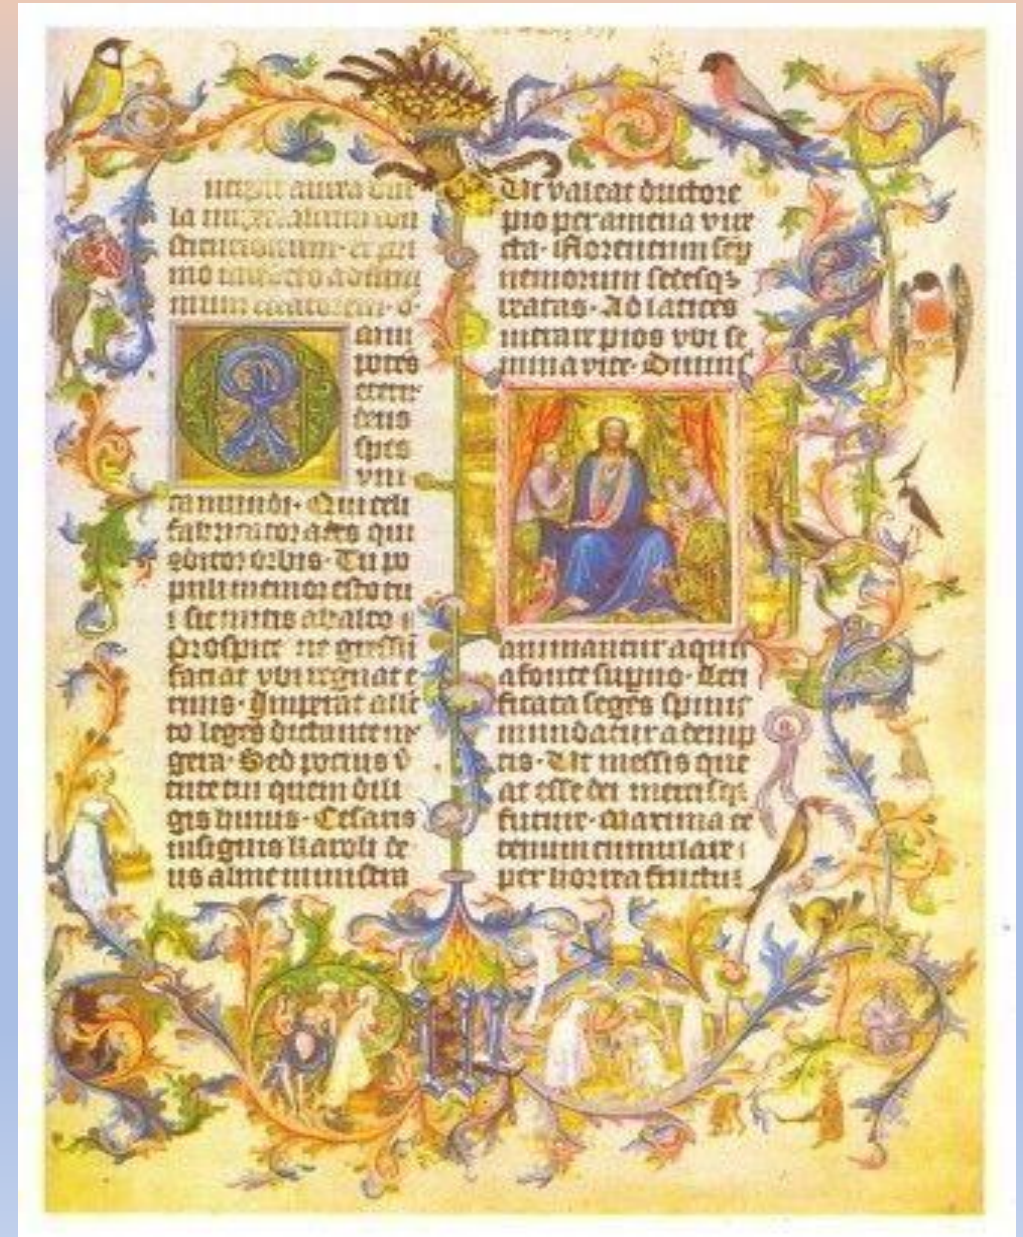 aurea bul
la
et pri
mo
mum creatorem · o
mni
potes
eterne
deus
spes
vni
ca mundi · Qui celi
fabricator ades qui
ditor orbis · Tu po
puli memor esto tu
i sic mitis ab alto
Prospice ne gressu
faciat vbi regnat e
rinis · Imperat alle
to leges dictante me
gera · Sed pocius v
tute tui quem dili
gis huius · Cesaris
insignis Karoli de
us alme ministra
Ut valeat ductore
pio per amena vire
cta · Florentum sep
nemorum sedesq
beatas · Ad latices
intrare pios vbi se
mina vite · Diuinis
animantur aquis
a fonte supno · Leti
ficata seges spinis
mundaturademp
tis · Ut messis que
at esse dei mercisq
future · Maxima ce
tenum cumulare
per horrea fructus